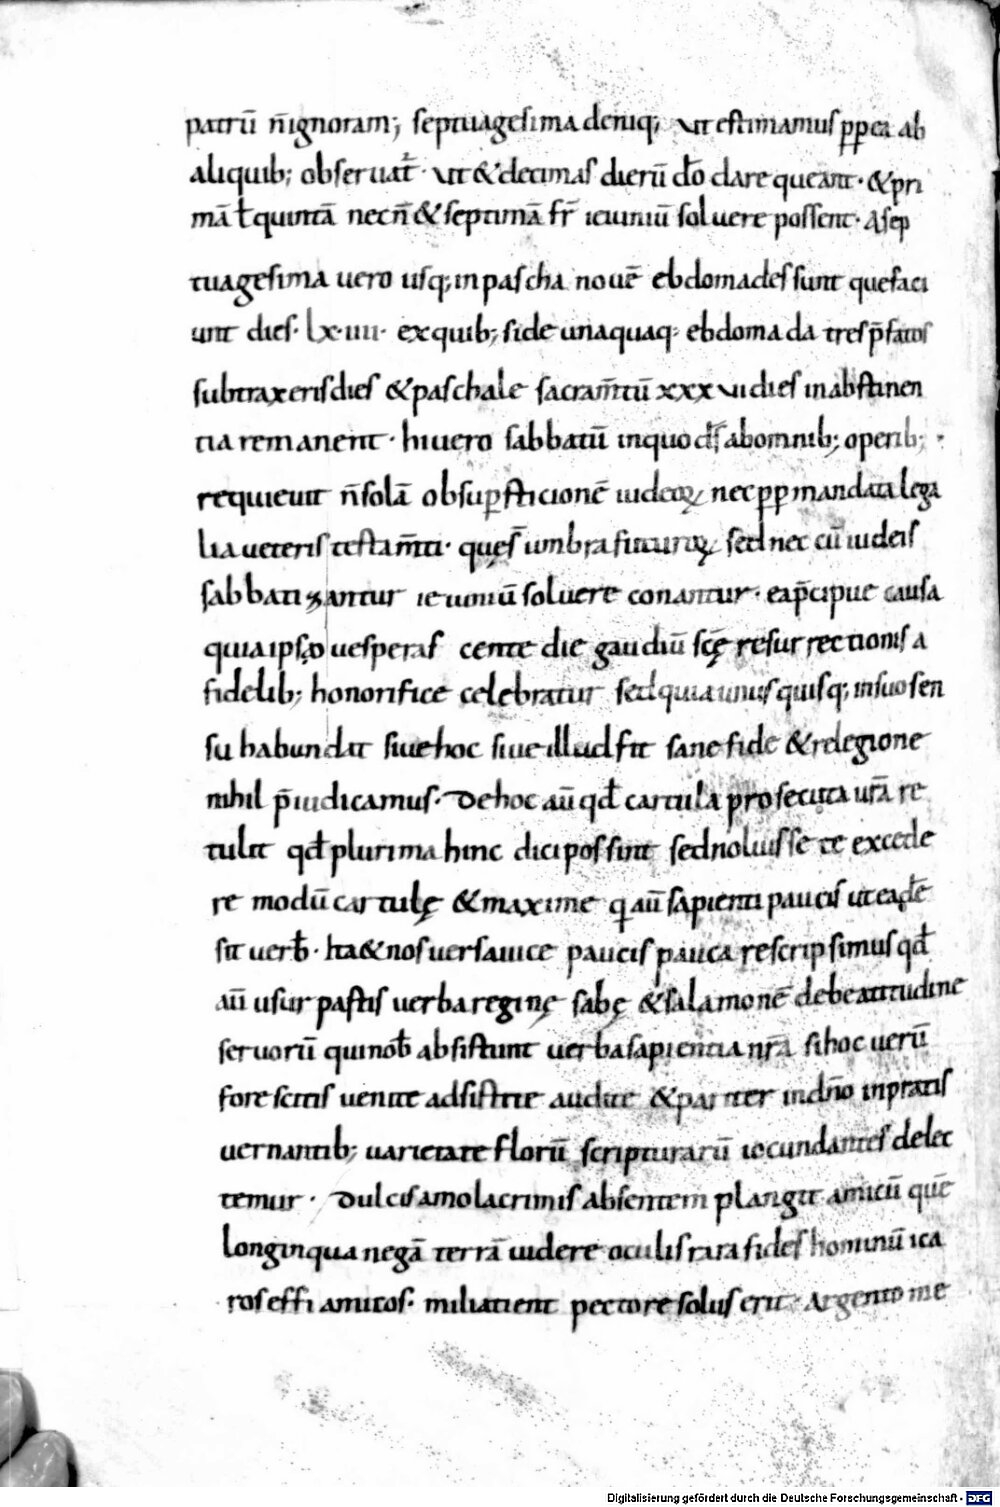 patrū n̄ignoram; septuagesima deniq; Vt estimamus ꝓpea ab
aliquib; obseruat̄. Vt & decimas dierū do͞ dare queant. & pri
mā ł quintā necn̄ & septimā fr̄ ieiuniū soluere possent. Asep
tuagesima uero usq; inpascha nouē ebdomades sunt quefaci
unt dies. lx.iiii. exquib; side unaquaq; ebdomada tres p̄fatos
subtraxeris dies & paschale sacram̄tū xxxvi dies inabstinen
tia remanent. hi uero sabbatū inquo ds̄ abomnib; operib;.
requieuit n̄ solā obsuꝑsticionē iudeoꝝ nec ꝓp mandata lega
lia ueteris testam̄ti. quęs̄ umbra futuroꝝ sed nec cū iudeis
sabbatizantur ieiuniū soluere conantur. eap̄cipue causa
quia ipso uesperascente die gaudiū scę̄ resurrectionis a
fidelib; honorifice celebratur sed quia unusquisq; insuo sen
su habundat siue hoc siue illud fit sane fide & relegione
nihil p̄iudicamus. De hoc aū qd̄ cartula prosecuta ur̄a re
tulit qd̄ plurima hinc dici possint sed noluisse te excede
re modū cartulę & maxime q aū sapienti paucis uteadē
sit uerb̄. Ita & nos uersa uice paucis pauca rescripsimus qd̄
aū usurpastis uerba reginę sabę & salamonē debeatitudine
seruorū quinob̄ absistunt uerba sapientia nr̄a si hoc uerū
fore scitis uenite adsistite audite & pariter indn̄o inpratis
uernantib; uarietate florū scripturarū iocundantes delec
temur. Dulcis amo lacrimis absentem plangit amicū quē
longinqua negā terrā uidere oculis rara fides hominū ica
ros effi amicos. miliatient pectore solus erit. Argento me
Digitalisierung gefördert durch die Deutsche Forschungsgemeinschaft - DFG